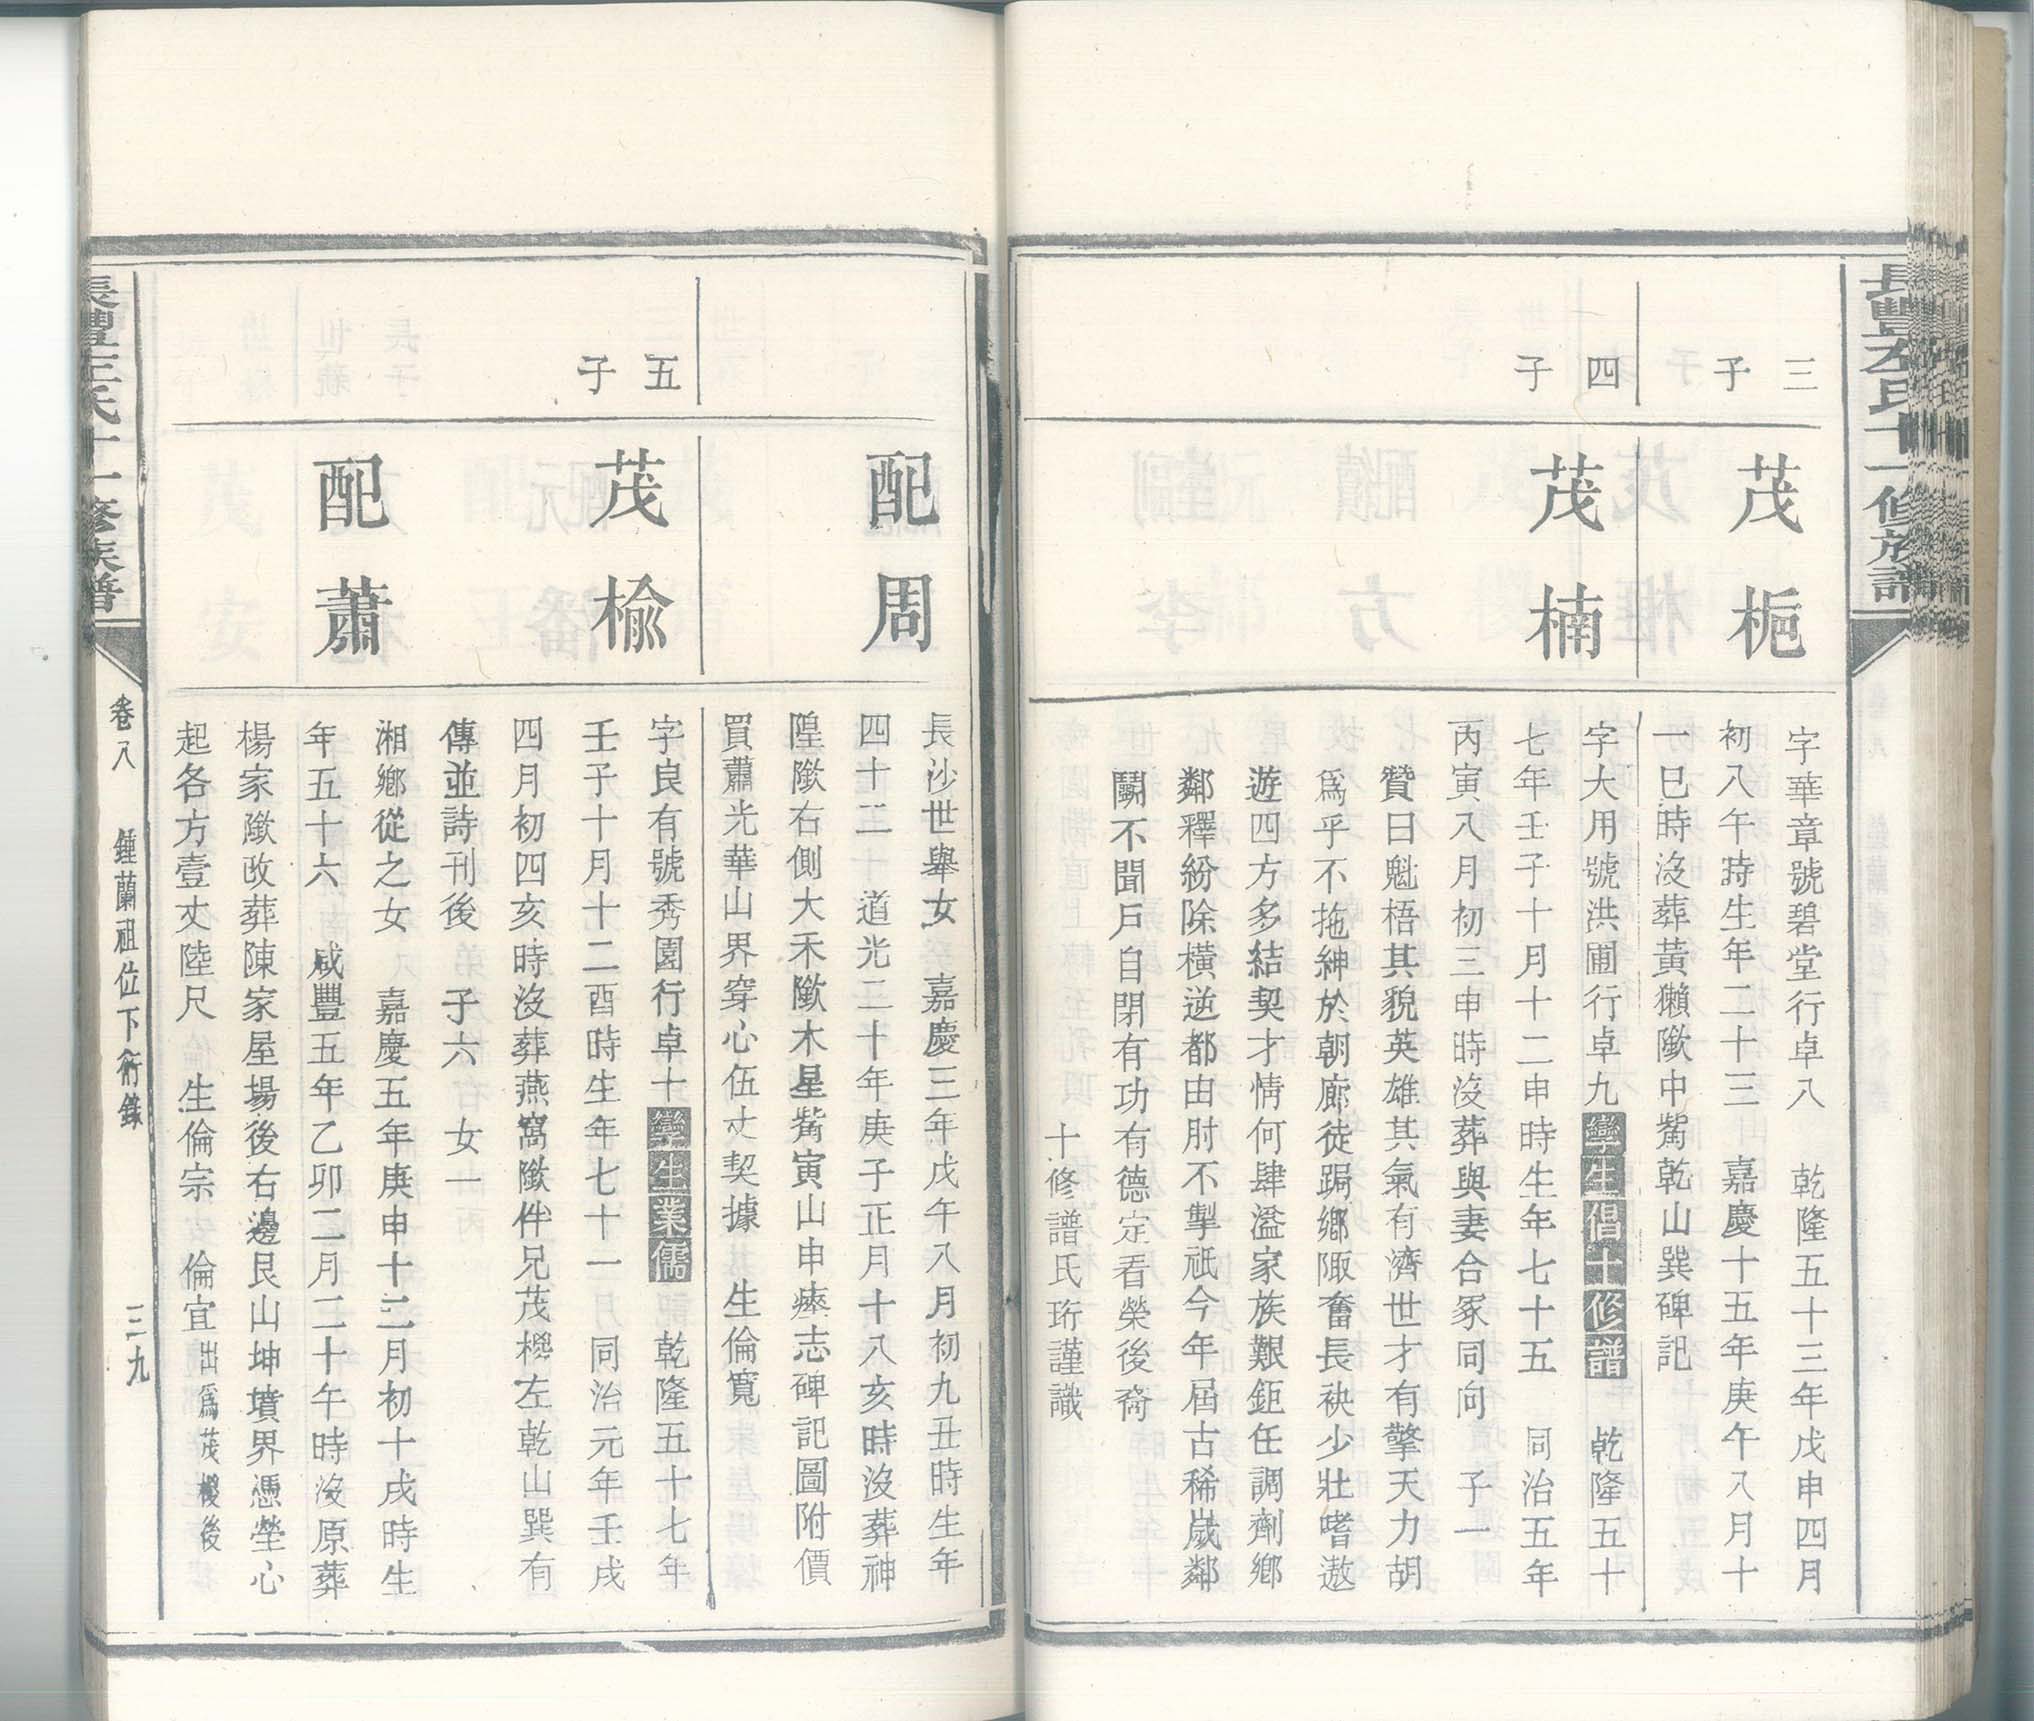 長豐左氏十一修族譜
三子
茂梔
字華章號碧堂行卓八 乾隆五十三年戊申四月
初八午時生年二十三 嘉慶十五年庚午八月十
一巳時沒葬黃獺𡑞中嘴乾山巽碑記
四子
茂楠
字大用號洪圃行卓九孿生倡十修譜 乾隆五十
七年壬子十月十二申時生年七十五 同治五年
丙寅八月初三申時沒葬與妻合冢同向 子一
贊曰魁梧其貌英雄其氣有濟世才有擎天力胡
爲乎不拖紳於朝廊徒跼鄉陬奮長袂少壯嗜遨
遊四方多結契才情何肆溢家族艱鉅任調劑鄉
鄰釋紛除橫逆都由肘不掣祇今年屆古稀歲鄰
鬬不聞戶自閉有功有德定看榮後裔
十修譜氏珩謹識
配周
長沙世舉女 嘉慶三年戊午八月初九丑時生年
四十二 道光二十年庚子正月十八亥時沒葬神
隍𡑞右側大禾𡑞木星嘴寅山申瘞志碑記圖附價
買蕭光華山界穿心伍丈契據 生倫寬
五子
茂楡
字良有號秀園行卓十孿生業儒 乾隆五十七年
壬子十月十二酉時生年七十一 同治元年壬戌
四月初四亥時沒葬燕窩𡑞伴兄茂樛左乾山巽有
傳並詩刊後 子六 女一
配蕭
湘鄉從之女 嘉慶五年庚申十二月初十戌時生
年五十六 咸豐五年乙卯二月二十午時沒原葬
楊家𡑞改葬陳家屋場後右邊艮山坤墳界憑塋心
起各方壹丈陸尺 生倫宗 倫宜出爲茂樛後
長豐左氏十一修族譜
卷八 鍾蘭祖位下衍錄 三九